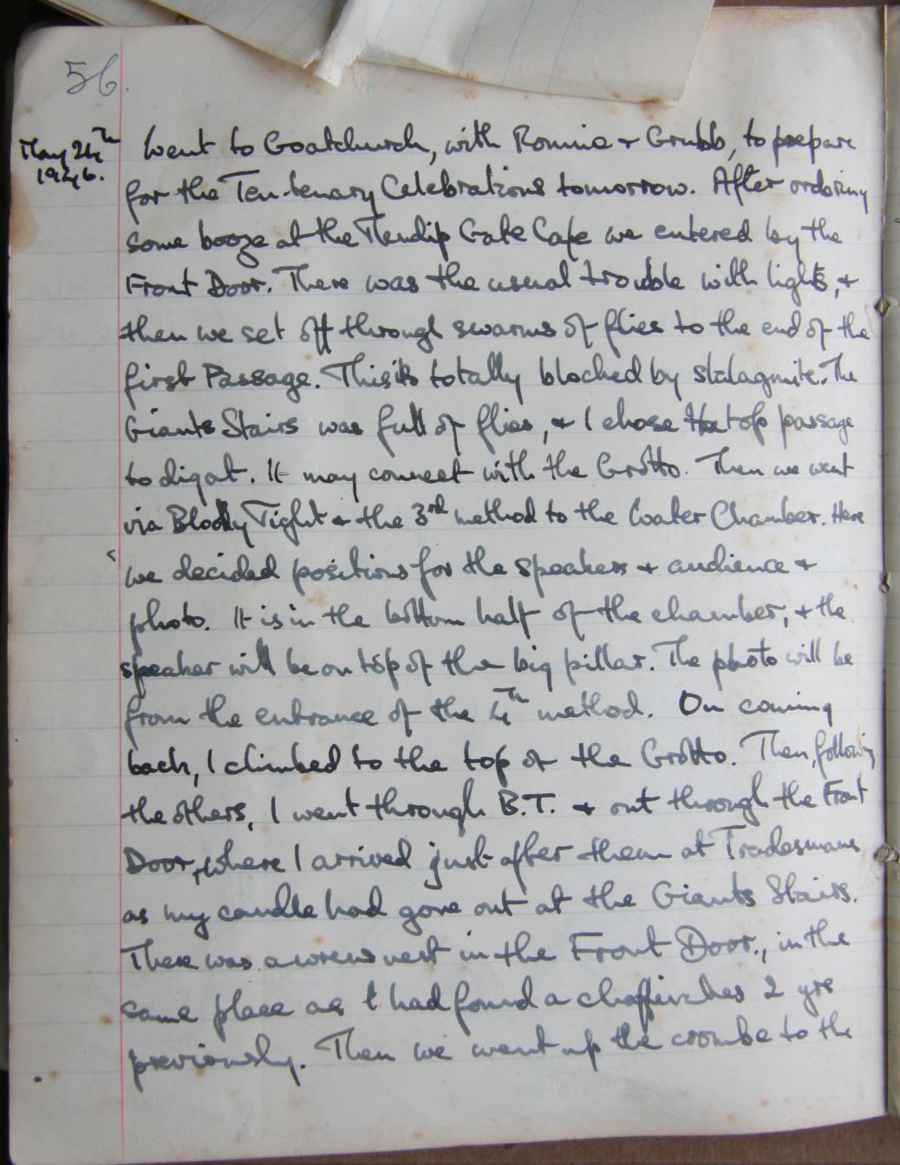 56
May 24th
1946.
Went to Goatchurch, with Ronnie + Grubb, to prepare
for the Ten-tenary Celebrations tomorrow. After ordering
some booze at the Mendip Gate Cafe we entered by the
Front Door. There was the usual trouble with lights, +
then we set off through swarms of flies to the end of the
first Passage. This is totally blocked by stalagmite. The
Giants Stairs was full of flies, + I chose the top passage
to dig at. It may connect with the Grotto. Then we went
via Bloody Tight + the 3rd method to the Water Chamber. Here
we decided positions for the speakers + audience +
photo. It is in the bottom half of the chamber, + the
speaker will be on top of the big pillar. The photo will be
from the entrance of the 4th method. On coming
back, I climbed to the top of the Grotto. Then, following
the others, I went through B.T. + out through the Front
Door, where I arrived just after them at Tradesmans
as my candle had gone out at the Giants Stairs.
There was a wrens nest in the Front Door, in the
same place as I had found a chaffinches 2 yrs
previously. Then we went up the coombe to the